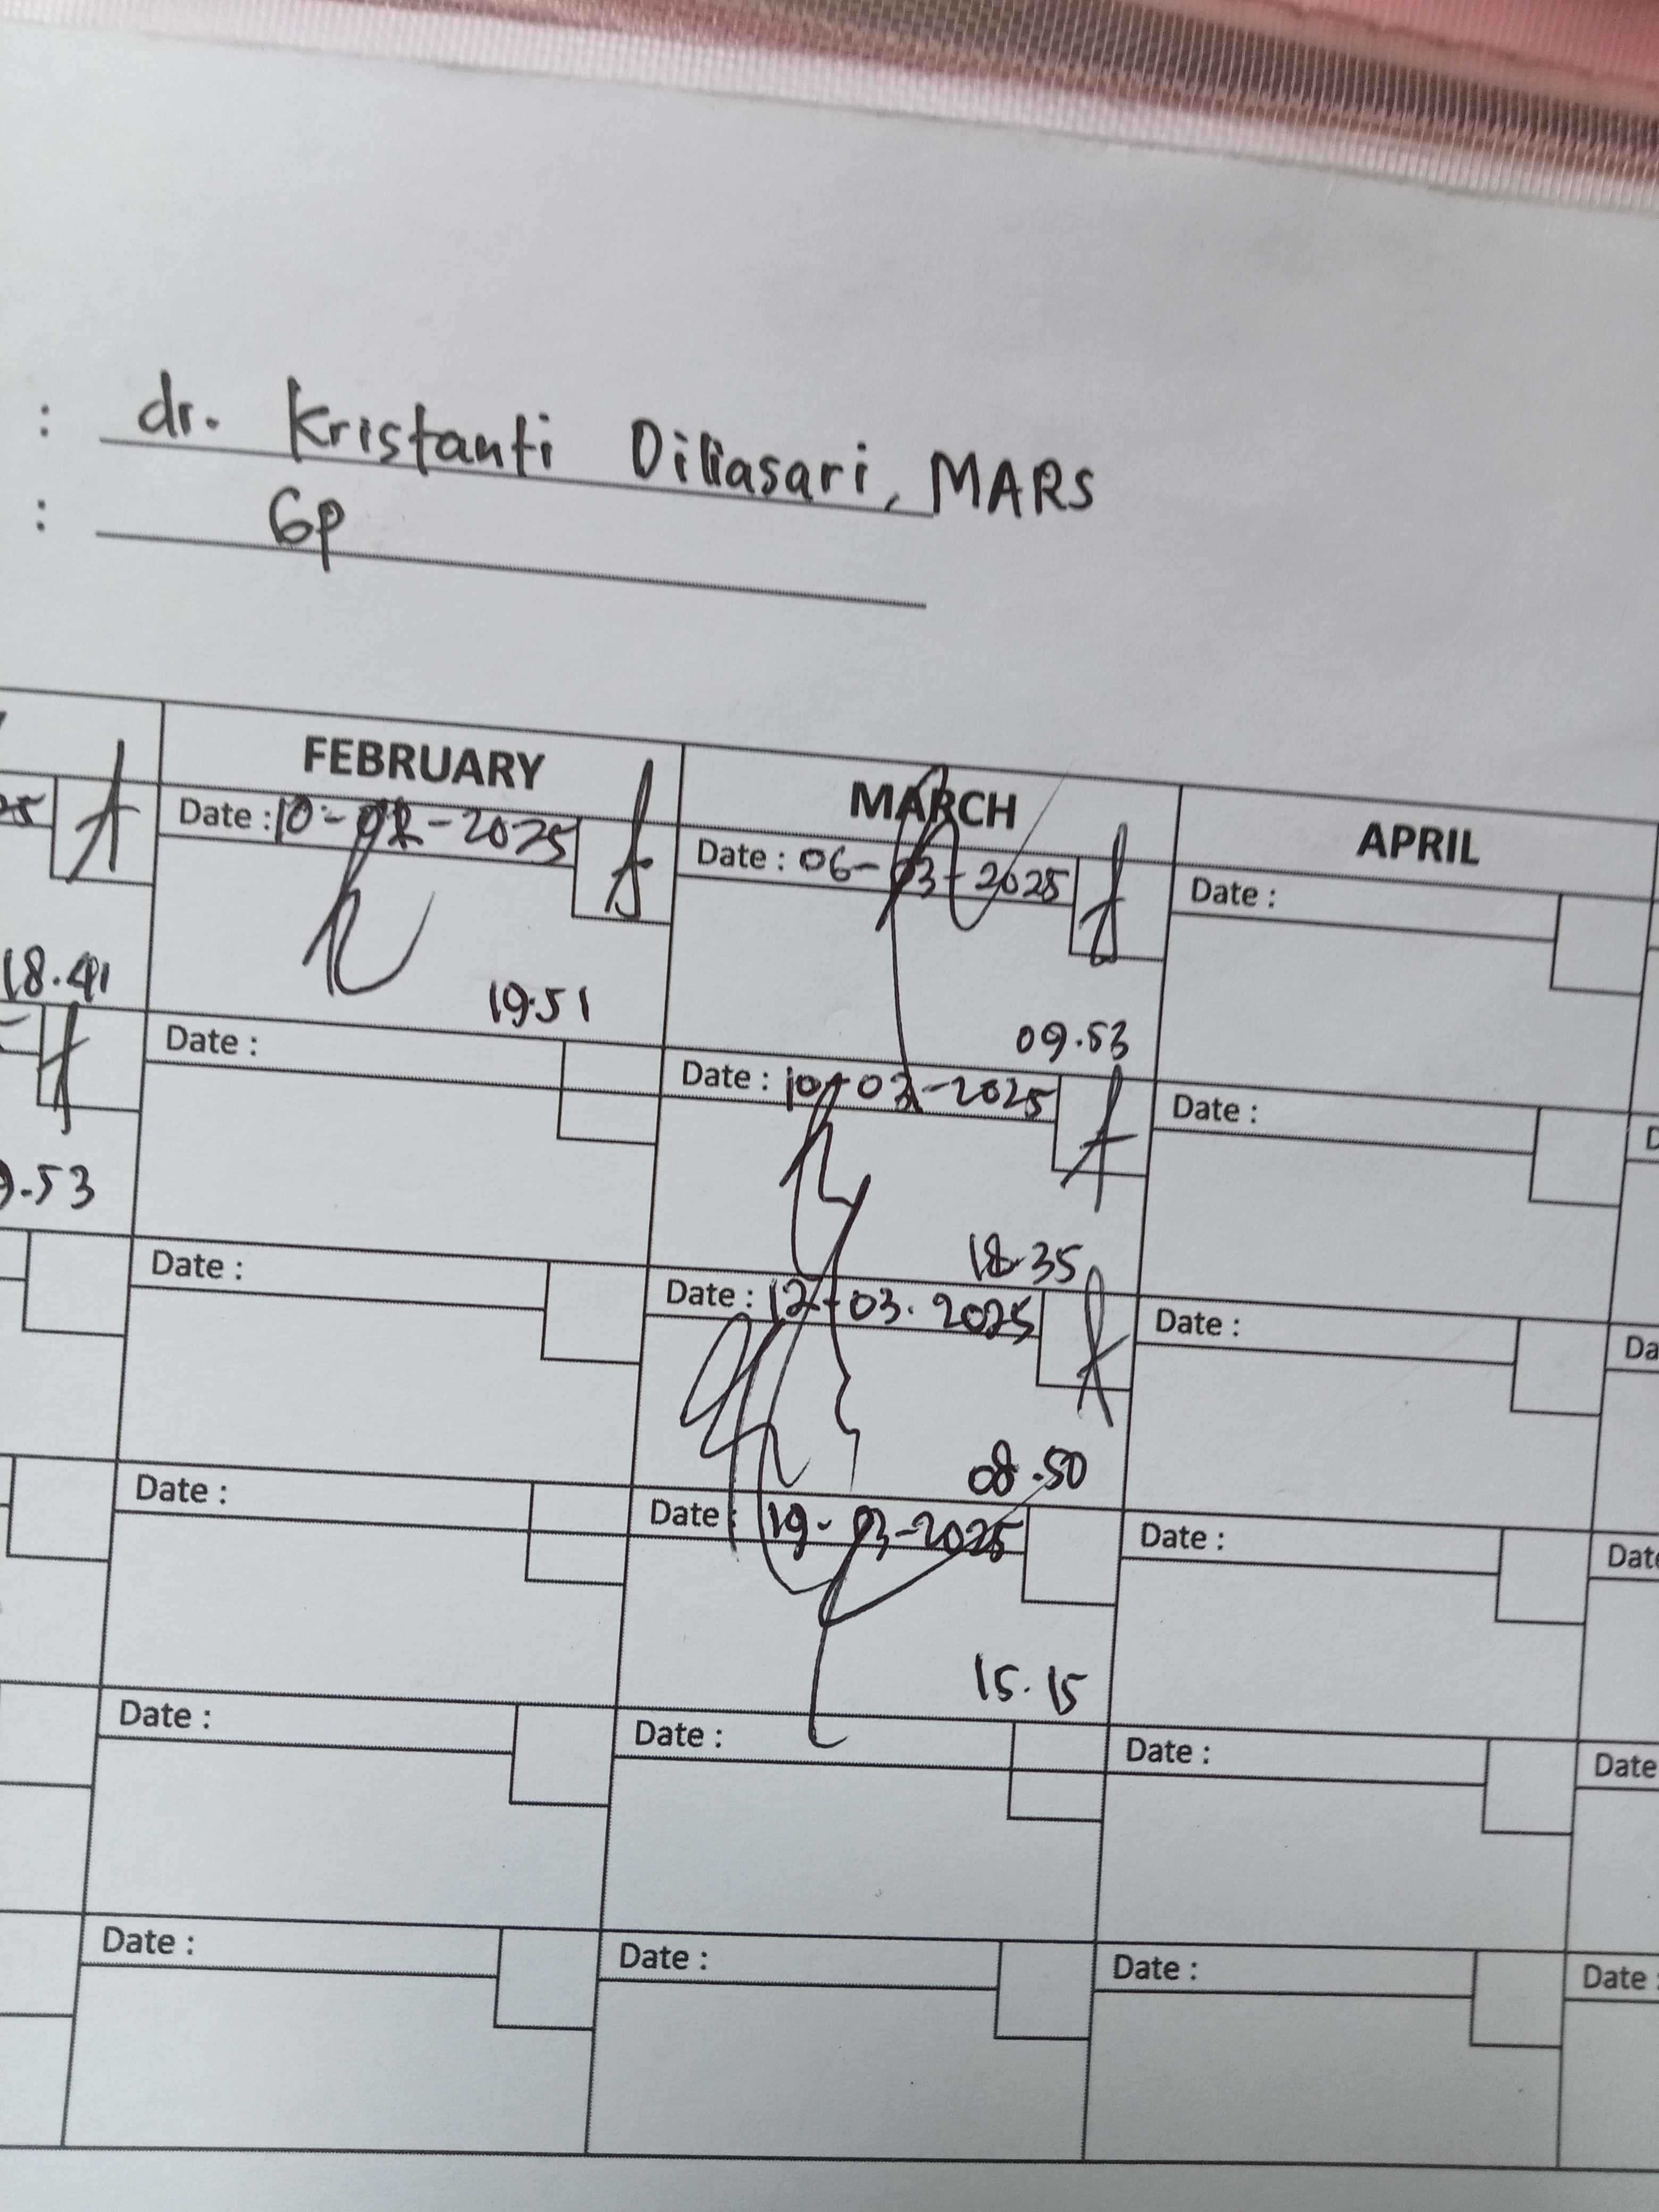 : dr. Kristanti Diliasari, MARS
: GP
FEBRUARY MARCH APRIL
25 Date : 10-02-2025 Date : 06-03-2025 Date :
18.41 19.51 09.53
Date : Date : 10-03-2025 Date :
.53 18.35
Date : Date : 12-03.2025 Date : Da
08.50
Date : Date : 19-03-2025 Date : Date
15.15
Date : Date : Date : Date
Date : Date : Date : Date :